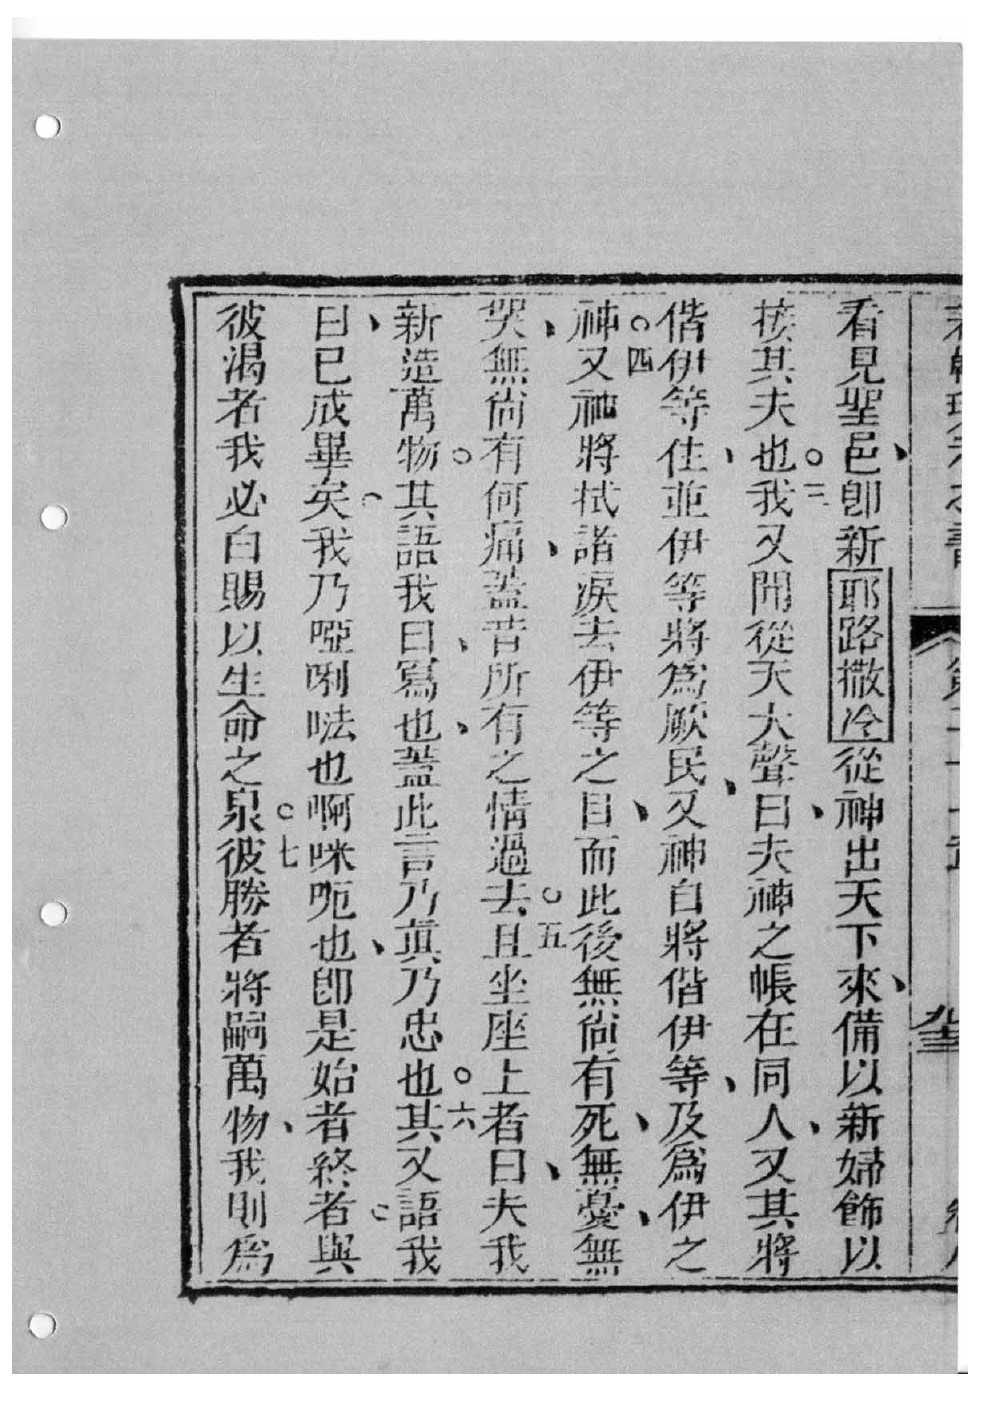 看見聖邑、卽新耶路撒冷從神出天下來、備以新婦飾以
接其夫也。三我又聞從天大聲曰、夫神之帳在同人、又其將
偕伊等住、並伊等將爲厥民、又神自將偕伊等、及爲伊之
神。四又神將拭諸淚去伊等之目、而此後無尙有死、無憂、無
哭、無尙有何痛、蓋昔所有之情過去。五且坐座上者曰、夫我
新造萬物。其語我曰、寫也、蓋此言乃眞乃忠也。六其又語我
曰、已成畢矣。我乃啞唎𠵽也啊咪呃也、卽是始者終者。與
彼渴者我必白賜以生命之泉。七彼勝者將嗣萬物、我則爲